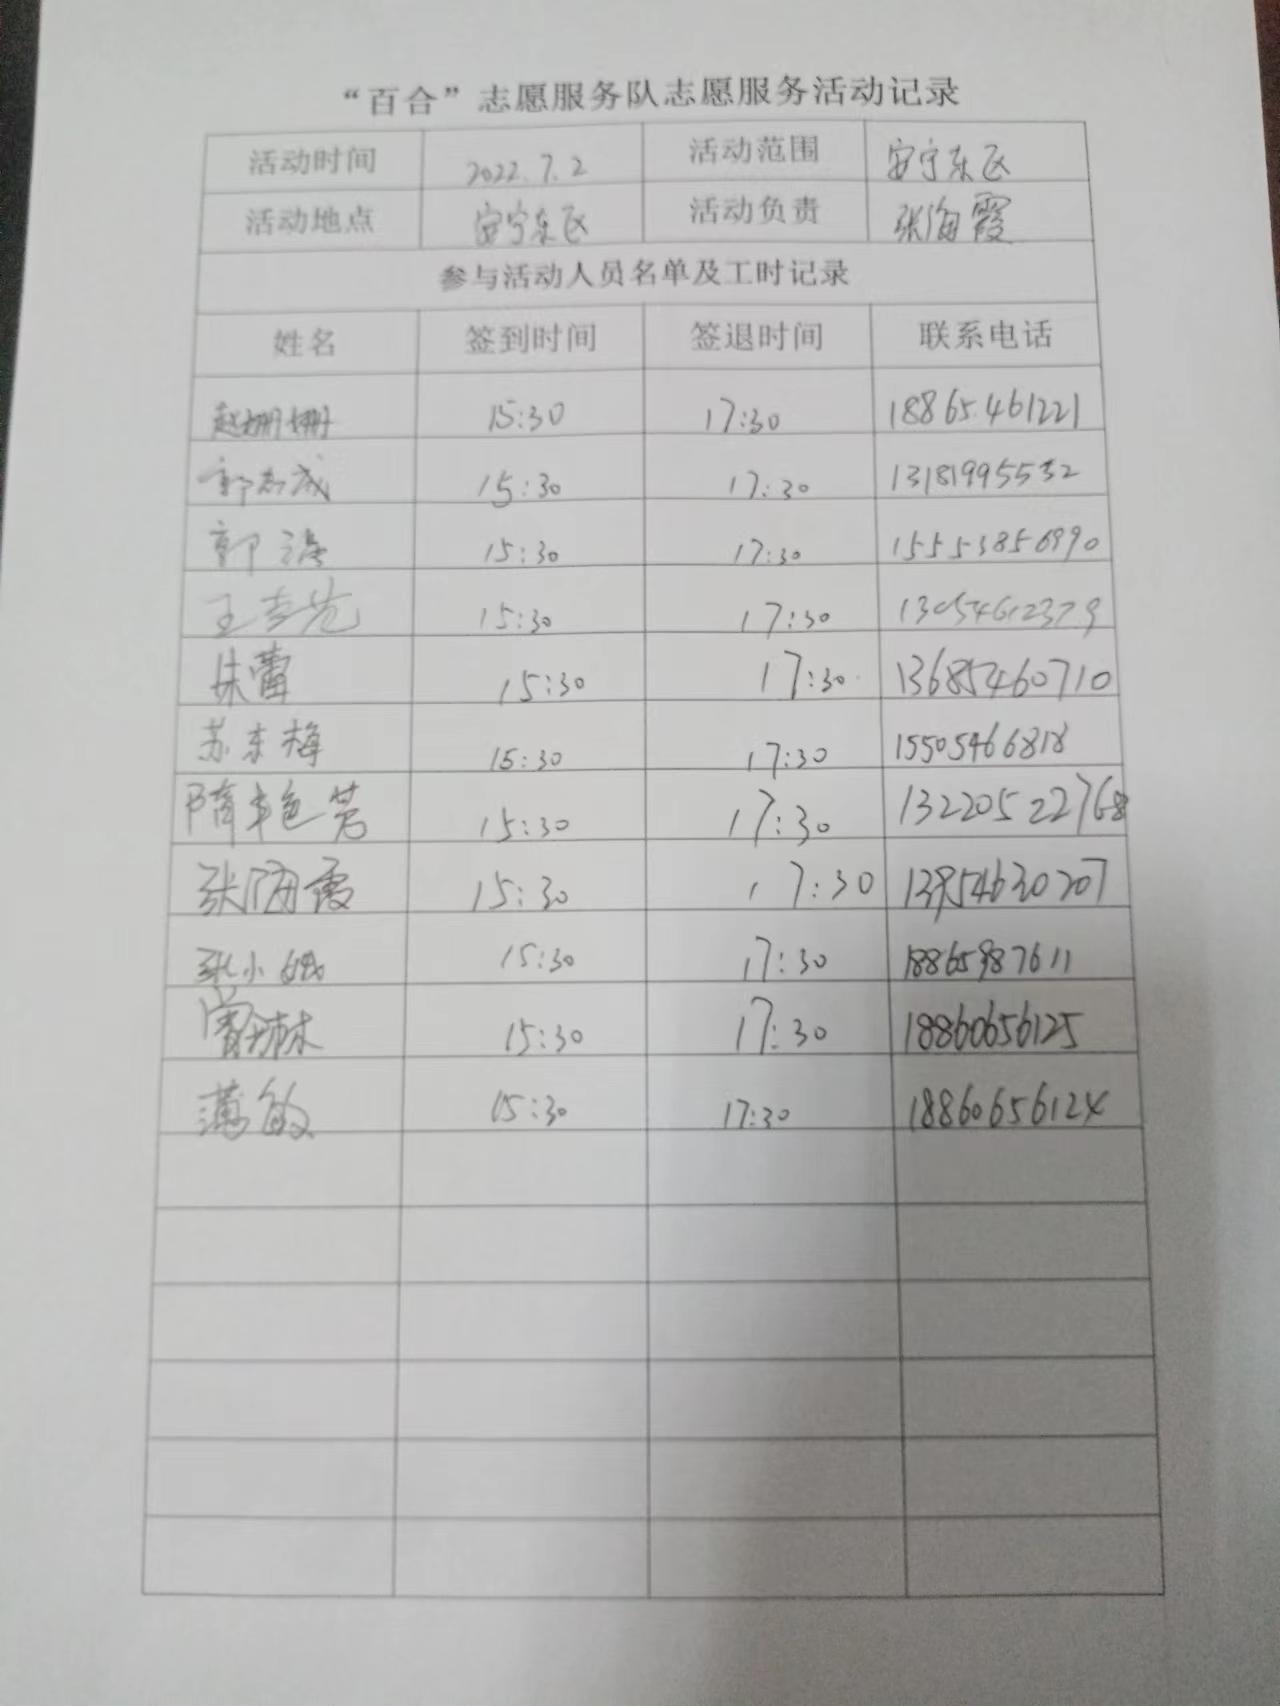 “百合”志愿服务队志愿服务活动记录
活动时间 2022.7.2 活动范围 安宁东区
活动地点 安宁东区 活动负责 张海霞
参与活动人员名单及工时记录
姓名 签到时间 签退时间 联系电话
赵姗姗 15:30 17:30 18865461221
郭志成 15:30 17:30 13181995532
郭 15:30 17:30 15553856990
王志先 15:30 17:30 13054612379
朱蕾 15:30 17:30 13685460710
苏东梅 15:30 17:30 15505466818
隋艳芳 15:30 17:30 13220522768
张海霞 15:30 17:30 13954630207
张小娥 15:30 17:30 18865987611
15:30 17:30 18860656125
薄敏 15:30 17:30 18860656124